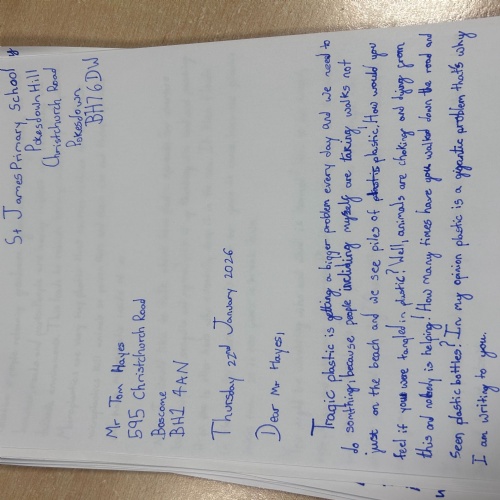 St James Primary School
Pokesdown Hill
Christchurch Road
Pokesdown
BH7 6DW
Mr Tom Hayes
595 Christchurch Road
Boscome
BH1 4AN
Thursday 22nd January 2026
Dear Mr Hayes,
Tragic plastic is getting a bigger problem every day and we need to
do somthing, because people including myself are taking walks not
just on the beach and we see piles of plastic. How would you
feel if you were tangled in plastic? Well, animals are choking and dying from
this and nobody is helping! How many times have you walked down the road and
seen plastic bottles? In my opinion plastic is a gigantic problem that's why
I am writing to you.